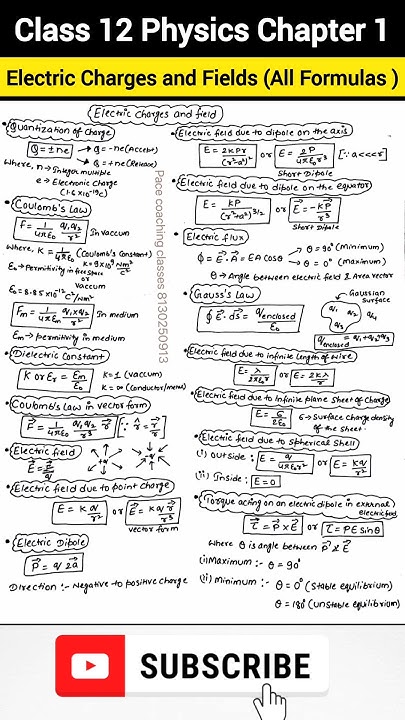 Class 12 Physics Chapter 1
Electric Charges and Fields (All Formulas )
Electric Charges and field
• Quantization of Charge
Q = ± ne → q = -ne (Accept)
→ Q = +ne (Release)
Where, n → Integer multiple
e → Electronic Charge
(1.6 × 10⁻¹⁹C)
• Coulomb's Law
F = 1/4πε₀ q₁q₂/r² In vaccum
Where, K = 1/4πε₀ (Coulomb's Constant)
K = 9×10⁹ Nm²/C²
ε₀ → Permittivity in free space
or
vaccum
ε₀ = 8.85×10⁻¹² C²/Nm²
Fm = 1/4πεm q₁×q₂/r² In medium
εm → permittivity in medium
• Dielectric Constant
K or εr = εm/ε₀ K=1 (vaccum)
K = ∞ (Conductor/metal)
• Coulomb's Law in vector form
F⃗ = 1/4πε₀ q₁q₂/r³ r⃗ [∵ r̂ = r⃗/r]
• Electric field
E⃗ = F⃗/q
• Electric field due to point charge
E = Kq/r² or E⃗ = Kq r⃗/r³
vector form
• Electric Dipole
P⃗ = q 2a⃗
Direction :- Negative to positive charge
• Electric field due to dipole on the axis
E = 2KPr/(r²-a²)² or E = 2P/4πε₀r³ [∵ a<<<r]
Short Dipole
• Electric field due to dipole on the equator
E = KP/(r²+a²)^3/2 or E⃗ = -KP⃗/r³
Short Dipole
• Electric flux
Φ = E⃗.A⃗ = EA cosθ → θ = 90° (Minimum)
→ θ = 0° (Maximum)
θ → Angle between electric field & Area vector
• Gauss's Law
∮E⃗.ds⃗ = q enclosed/ε₀
Gaussian
Surface
q₁
q₂
q₃
q enclosed = q₁+q₂+q₃
Electric field due to infinite Length of wire
E = λ/2πε₀r or E = 2Kλ/r
• Electric field due to infinite plane sheet of charge
E = σ/2ε₀ σ → Surface charge density
of the sheet.
• Electric field due to spherical shell
(i) Outside : E = q/4πε₀r² or E = Kq/r²
(ii) Inside : E = 0
• Torque acting on an electric dipole in external
electric field
τ⃗ = P⃗ × E⃗ or τ = PE sinθ
Where θ is angle between P⃗ & E⃗
(i) Maximum :- θ = 90°
(ii) Minimum :- θ = 0° (Stable equilibrium)
θ = 180° (Unstable equilibrium)
Pace coaching classes 8130250913
SUBSCRIBE